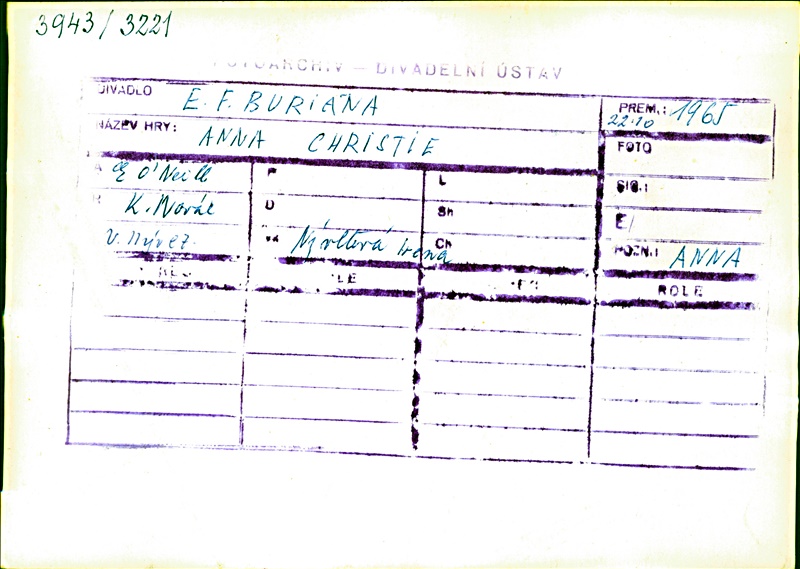 3943/3221
FOTOARCHIV — DIVADELNÍ ÚSTAV
DIVADLO E. F. BURIANA
PREM.: 1965
22.10
NÁZEV HRY: ANNA CHRISTIE
FOTO
A O'Neill
P
L
SIG.:
R K. Novák
D
Sh
E/
V. Nývlt
Vá
Ch
POZN.: ANNA
ROLE